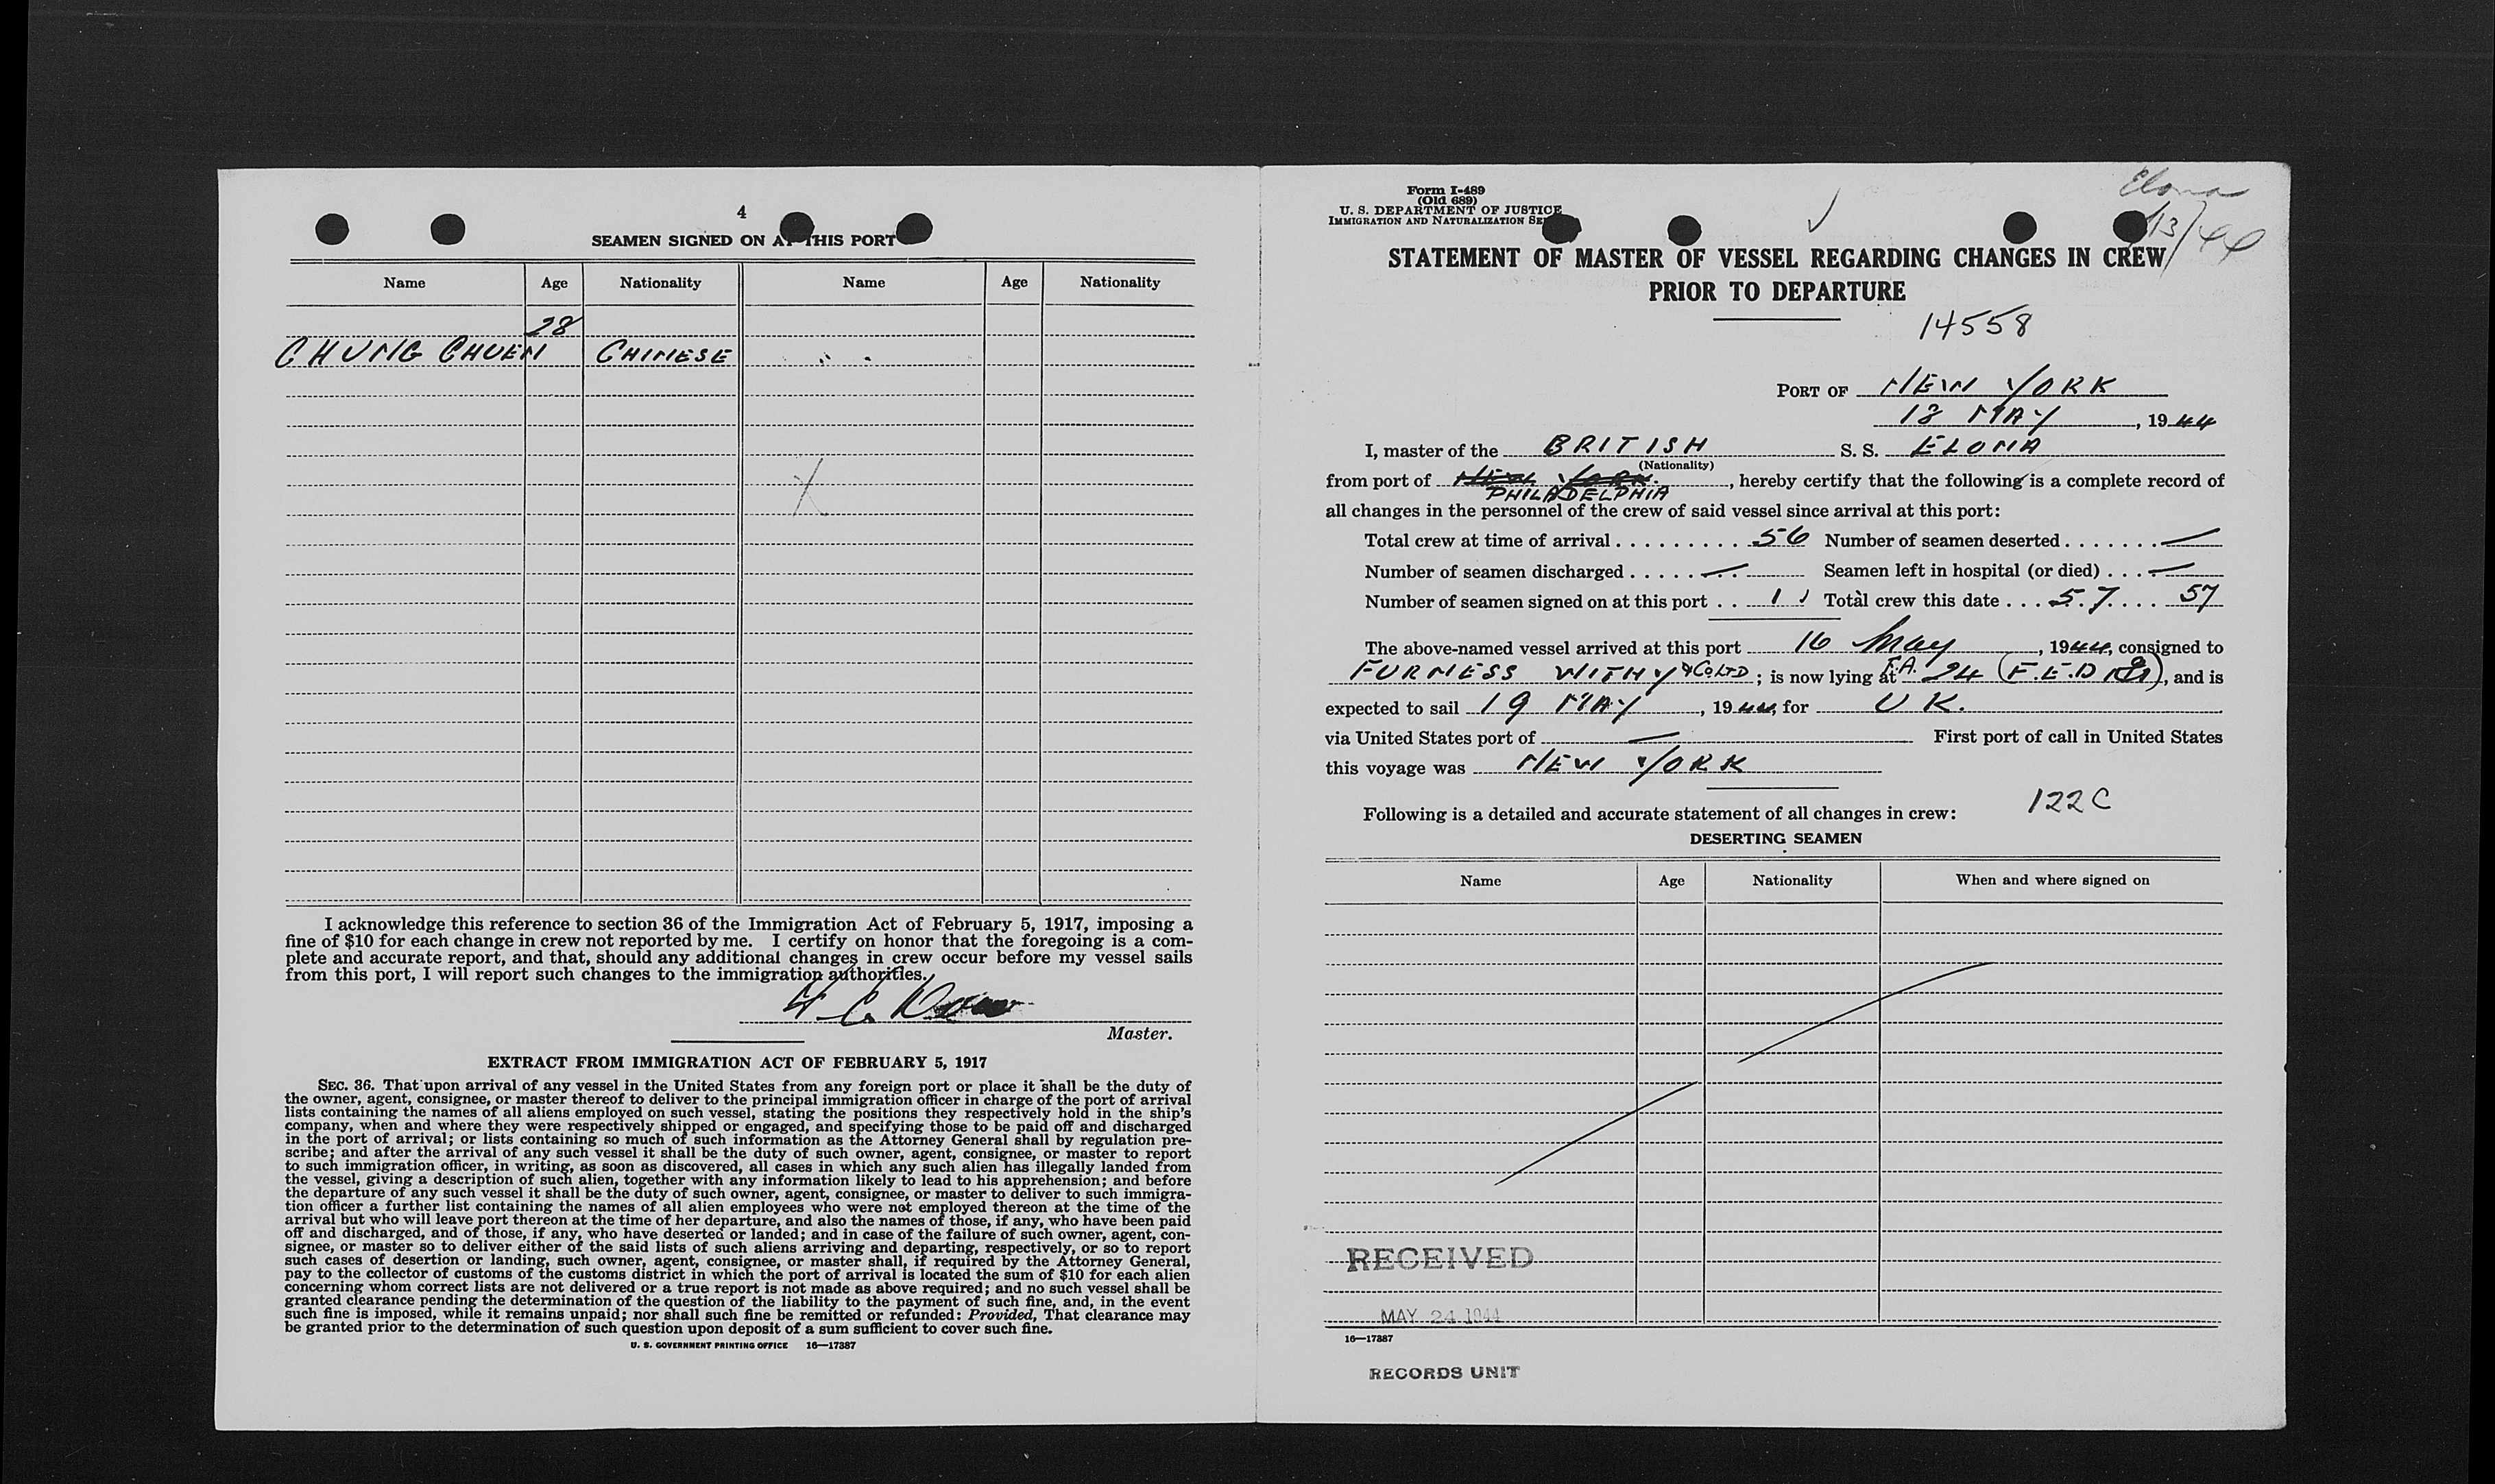 4
SEAMEN SIGNED ON AT THIS PORT
Name Age Nationality Name Age Nationality
28
CHUNG CHUEN CHINESE
I acknowledge this reference to section 36 of the Immigration Act of February 5, 1917, imposing a
fine of $10 for each change in crew not reported by me. I certify on honor that the foregoing is a com-
plete and accurate report, and that, should any additional changes in crew occur before my vessel sails
from this port, I will report such changes to the immigration authorities.
Master.
EXTRACT FROM IMMIGRATION ACT OF FEBRUARY 5, 1917
SEC. 36. That upon arrival of any vessel in the United States from any foreign port or place it shall be the duty of
the owner, agent, consignee, or master thereof to deliver to the principal immigration officer in charge of the port of arrival
lists containing the names of all aliens employed on such vessel, stating the positions they respectively hold in the ship's
company, when and where they were respectively shipped or engaged, and specifying those to be paid off and discharged
in the port of arrival; or lists containing so much of such information as the Attorney General shall by regulation pre-
scribe; and after the arrival of any such vessel it shall be the duty of such owner, agent, consignee, or master to report
to such immigration officer, in writing, as soon as discovered, all cases in which any such alien has illegally landed from
the vessel, giving a description of such alien, together with any information likely to lead to his apprehension; and before
the departure of any such vessel it shall be the duty of such owner, agent, consignee, or master to deliver to such immigra-
tion officer a further list containing the names of all alien employees who were not employed thereon at the time of the
arrival but who will leave port thereon at the time of her departure, and also the names of those, if any, who have been paid
off and discharged, and of those, if any, who have deserted or landed; and in case of the failure of such owner, agent, con-
signee, or master so to deliver either of the said lists of such aliens arriving and departing, respectively, or so to report
such cases of desertion or landing, such owner, agent, consignee, or master shall, if required by the Attorney General,
pay to the collector of customs of the customs district in which the port of arrival is located the sum of $10 for each alien
concerning whom correct lists are not delivered or a true report is not made as above required; and no such vessel shall be
granted clearance pending the determination of the question of the liability to the payment of such fine, and, in the event
such fine is imposed, while it remains unpaid; nor shall such fine be remitted or refunded: Provided, That clearance may
be granted prior to the determination of such question upon deposit of a sum sufficient to cover such fine.
U. S. GOVERNMENT PRINTING OFFICE 16—17387
Form I-489
(Old 689)
U. S. DEPARTMENT OF JUSTICE
IMMIGRATION AND NATURALIZATION SE
Elona
13/44
STATEMENT OF MASTER OF VESSEL REGARDING CHANGES IN CREW
PRIOR TO DEPARTURE
14558
PORT OF NEW YORK
18 MAY, 1944
I, master of the BRITISH S. S. ELONA
(Nationality)
from port of New York. PHILADELPHIA, hereby certify that the following is a complete record of
all changes in the personnel of the crew of said vessel since arrival at this port:
Total crew at time of arrival 56 Number of seamen deserted —
Number of seamen discharged — Seamen left in hospital (or died) —
Number of seamen signed on at this port 1 Total crew this date 57 57
The above-named vessel arrived at this port 16 May, 1944, consigned to
FURNESS WITHY & Co LTD; is now lying at F.A. 24 (F.E.D, and is
expected to sail 19 MAY, 1944, for U K.
via United States port of — First port of call in United States
this voyage was NEW YORK
Following is a detailed and accurate statement of all changes in crew: 122C
DESERTING SEAMEN
Name Age Nationality When and where signed on
RECEIVED
MAY 24 1944
16—17387
RECORDS UNIT